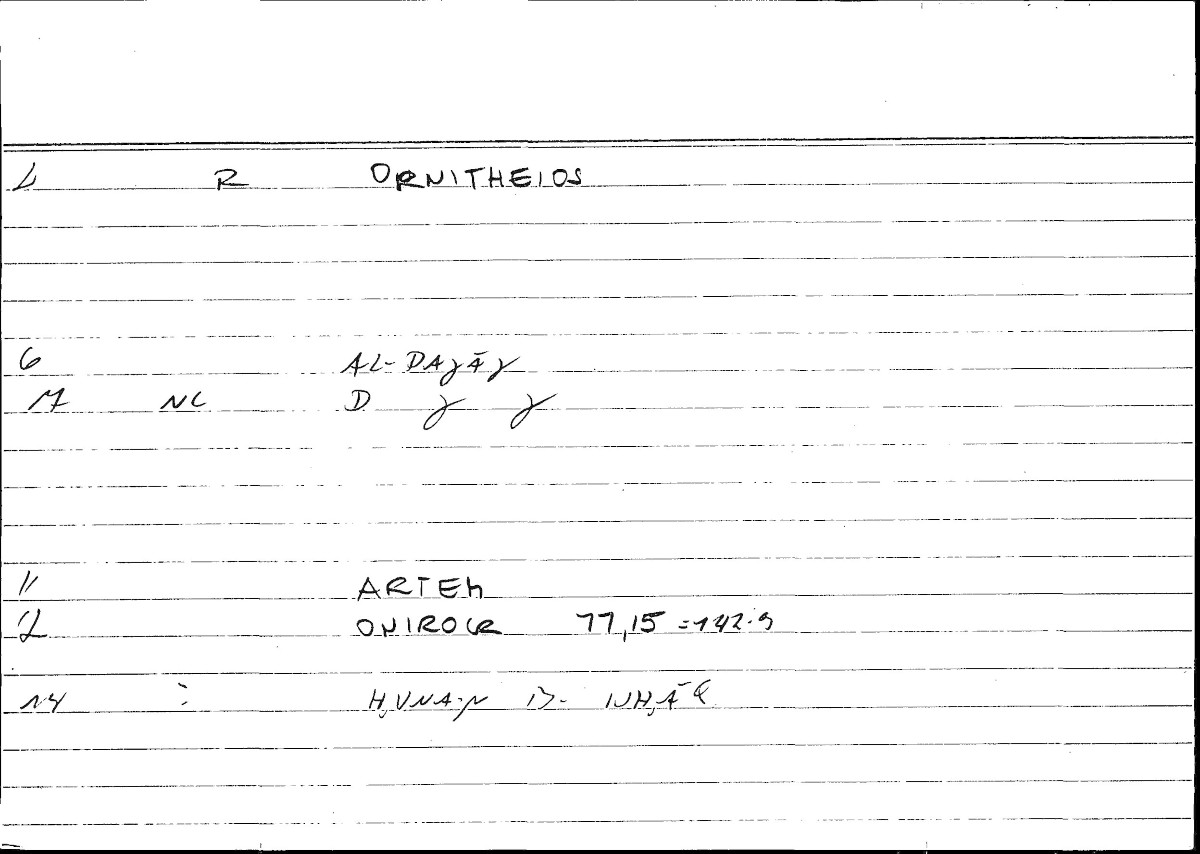 1 R ORNITHEIOS
6 AL-DAJĀJ
17 NC D J J
11 ARTEM
2 ONIROCR 77,15 =142.9
14 : H,UNA.YN B. ISH,ĀQ